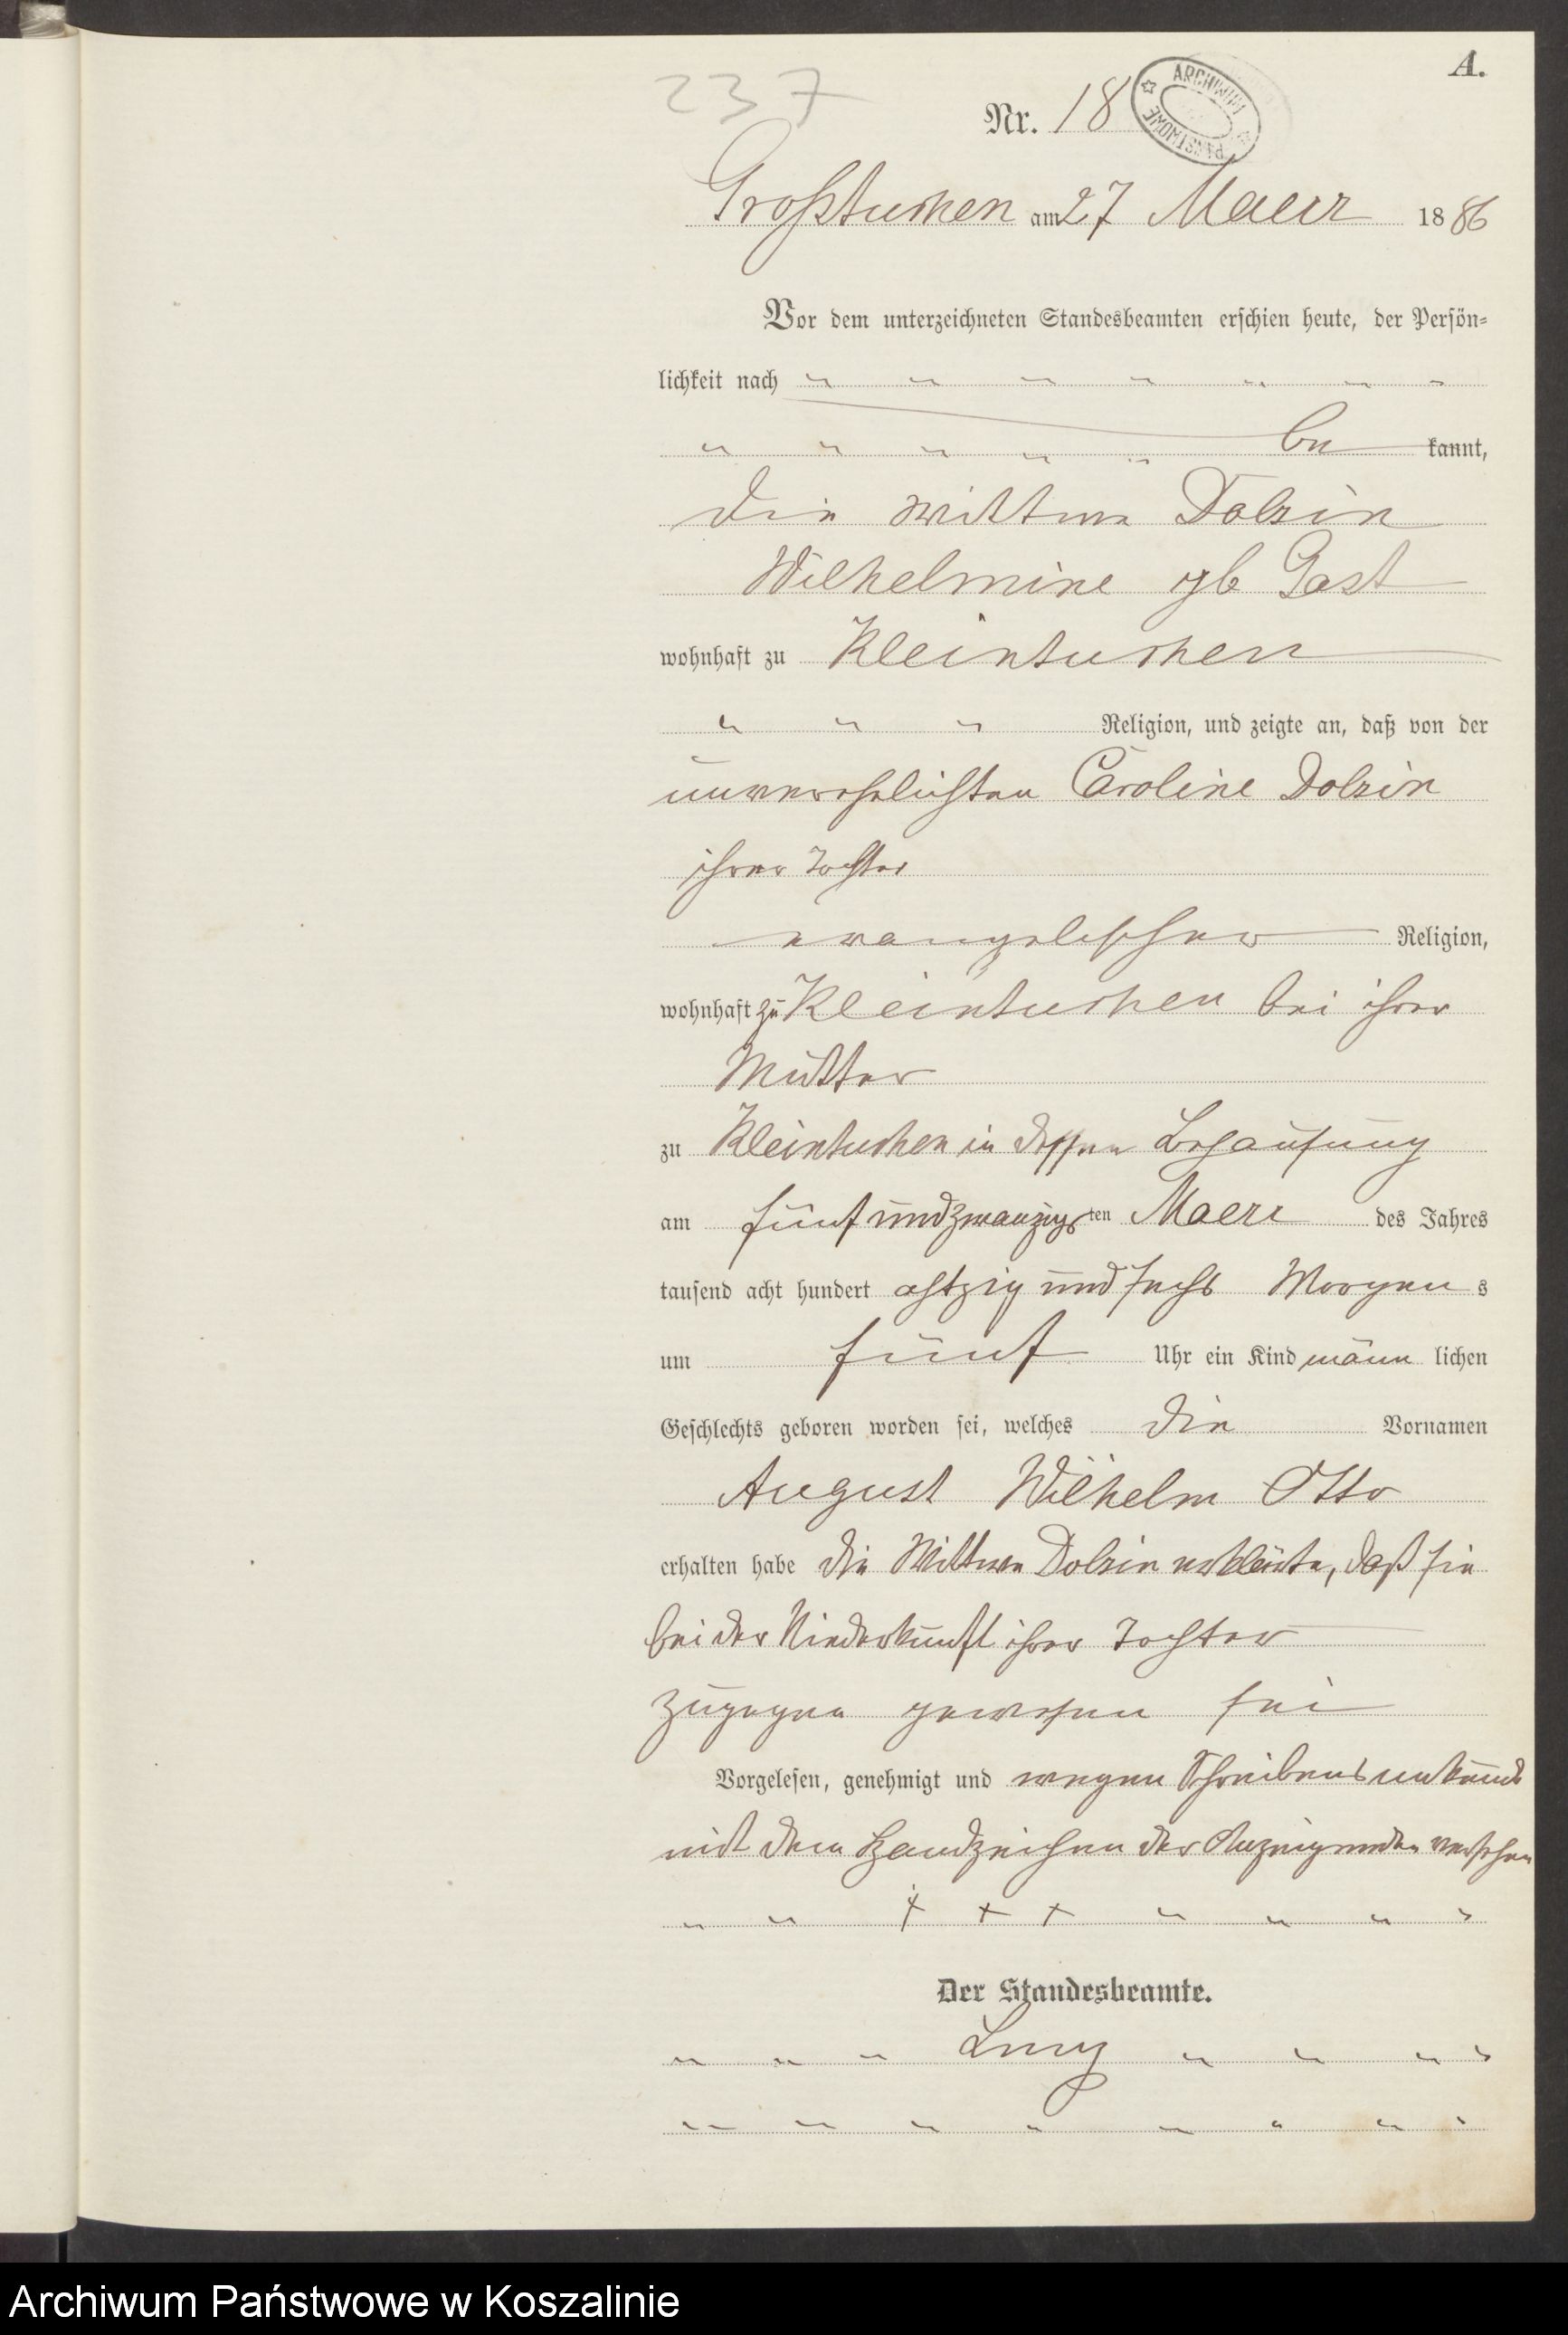 A.
237
Nr. 18
ARCHIWUM PAŃSTWOWE
Großtuchen am 27 Maerz 1886
Vor dem unterzeichneten Standesbeamten erschien heute, der Persön-
lichkeit nach " " " " " " "
" " " " " be kannt,
die Wittwe Dolzin
Wilhelmine gb Gast
wohnhaft zu Kleintuchen
" " " Religion, und zeigte an, daß von der
unverehelichten Caroline Dolzin
ihrer Tochter
evangelischer Religion,
wohnhaft zu Kleintuchen bei ihrer
Mutter
zu Kleintuchen in dessen Behausung
am fünf und zwanzigsten Maerz des Jahres
tausend acht hundert achtzig und sechs Morgens
um fünf Uhr ein Kind männlichen
Geschlechts geboren worden sei, welches die Vornamen
August Wilhelm Otto
erhalten habe die Wittwe Dolzin erklärte, daß sie
bei der Niederkunft ihrer Tochter
zugegen gewesen sei
Vorgelesen, genehmigt und wegen Schreibensunkunde
mit dem Handzeichen der Anzeigenden versehen
" " + + + " " " "
Der Standesbeamte.
" " " " " " "
" " " " " " " "
Archiwum Państwowe w Koszalinie